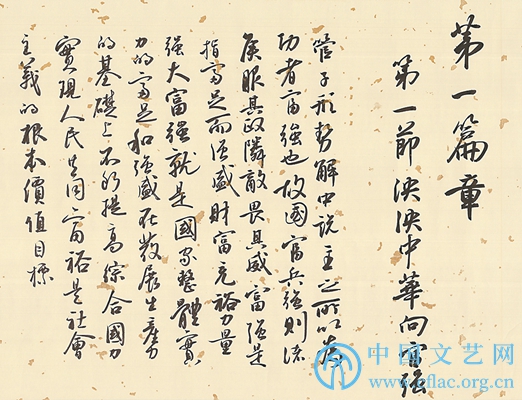 第一篇章
第一節泱泱中華向富强
管子形势解中说主之所以為
功者富強也故國富兵強則諸
侯服其政隣敵畏其威富強是
指富足而强盛財富充裕力量
强大富强就是國家整體實
力的富足和强盛在發展生産力
的基礎上不斷提高綜合國力
實現人民共同富裕是社會
主義的根本價值目標
中国文艺网
www.cflac.org.cn